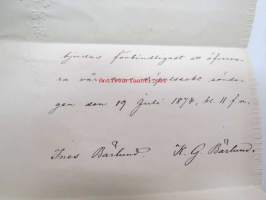 bjudas förbindligast att öfvervara
vår söndagen
den 19 Juli 1874, kl. 11 f.m.
Ines Bärlund. K. G. Bärlund.